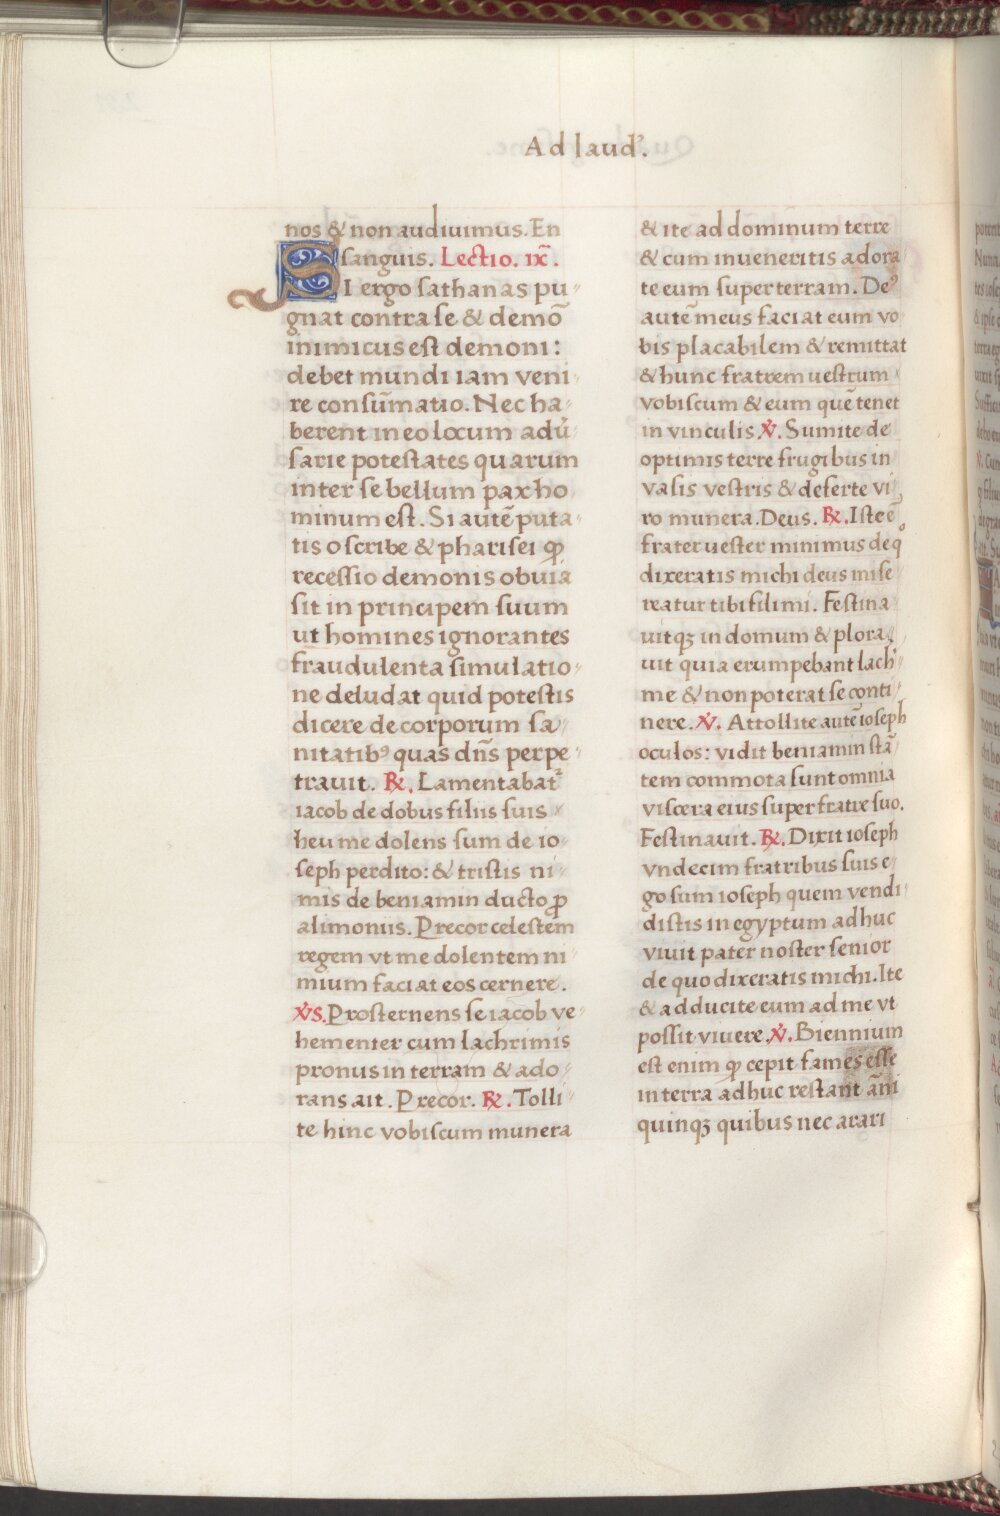 Ad laudꝰ.
nos & non audiuimus. En
sanguis. Lectio. ix̃.
SI ergo sathanas pu
gnat contra se & demõ
inimicus est demoni:
debet mundi iam veni
re consũmatio. Nec ha
berent in eo locum adũ
sarie potestates quarum
inter se bellum pax ho
minum est. Si autẽ puta
tis o scribe & pharisei ꝙ
recessio demonis obuia
sit in principem suum
ut homines ignorantes
fraudulenta simulatio
ne deludat quid potestis
dicere de corporum sa
nitatibꝰ quas dñs perpe
trauit. ℟. Lamentabat᷑
iacob de dobus filiis suis
heu me dolens sum de io
seph perdito: & tristis ni
mis de beniamin ducto ꝓ
alimoniis. Precor celestem
regem vt me dolentem ni
mium faciat eos cernere.
℣S. Prosternens se iacob ve
hementer cum lachrimis
pronus in terram & ado
rans ait. Precor. ℟. Tolli
te hinc vobiscum munera
& ite ad dominum terre
& cum inueneritis adora
te eum super terram. Deꝰ
autẽ meus faciat eum vo
bis placabilem & remittat
& hunc fratrem uestrum
vobiscum & eum quẽ tenet
in vinculis ℣. Sumite de
optimis terre frugibus in
vasis vestris & deferte vi
ro munera. Deus. ℟. Iste ẽ
frater uester minimus de q°
dixeratis michi deus mise
reatur tibi fili mi. Festina
uitqꝫ in domum & plora
uit quia erumpebant lach
me & non poterat se conti
nere. ℣. Attollite autẽ ioseph
oculos: vidit beniamin stã
tem commota sunt omnia
viscera eius super fratre suo.
Festinauit. ℟. Dixit ioseph
vndecim fratribus suis e
go sum ioseph quem vendi
distis in egyptum adhuc
viuit pater noster senior
de quo dixeratis michi. Ite
& adducite eum ad me vt
possit viuere. ℣. Biennium
est enim ꝙ cepit fames esse
in terra adhuc restant ãni
quinqꝫ quibus nec arari